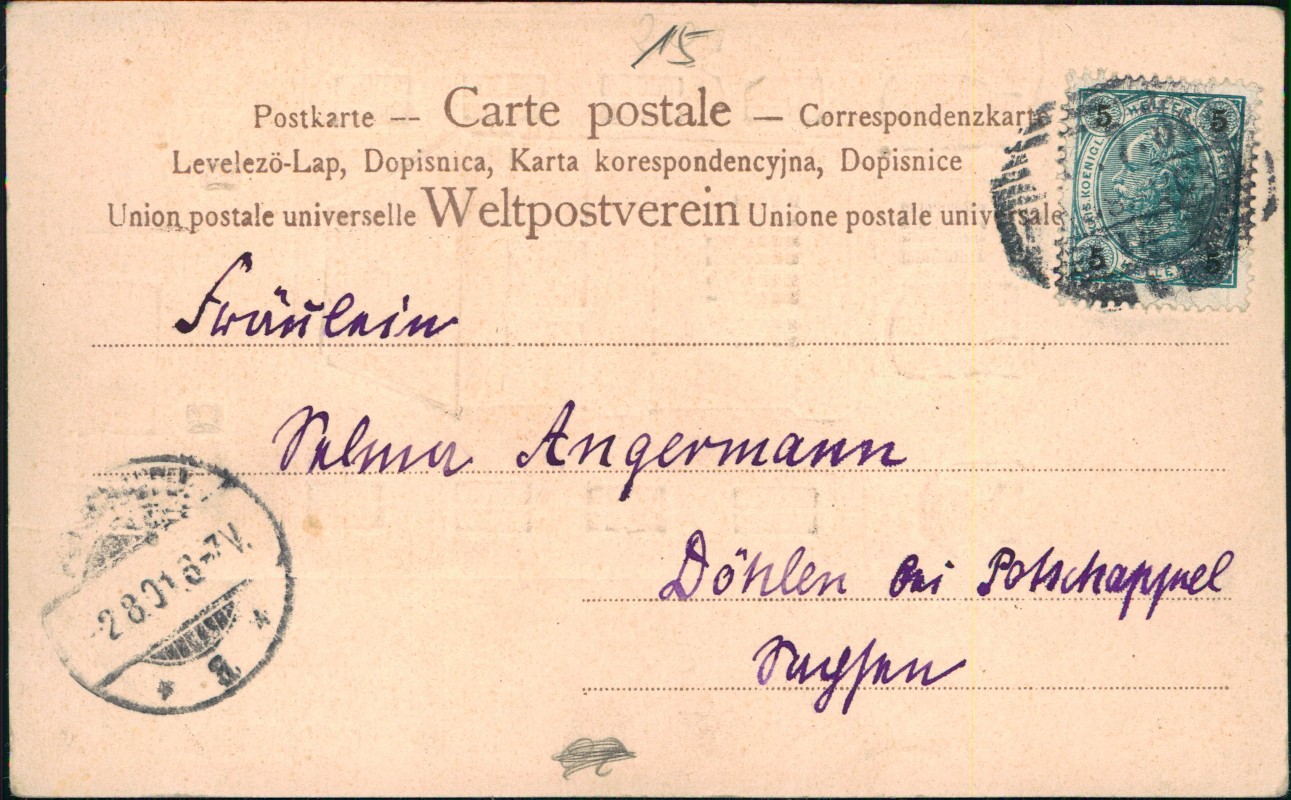 15
Postkarte -- Carte postale — Correspondenzkarte
Levelezö-Lap, Dopisnica, Karta korespondencyjna, Dopisnice
Union postale universelle Weltpostverein Unione postale universale
5 HELLER 5
KAIS. KOENIGL.
5 HELLER 5
Fräulein
Selma Angermann
Döhlen bei Potschappel
Sachsen
2.8.01. 6-7V.
* B *